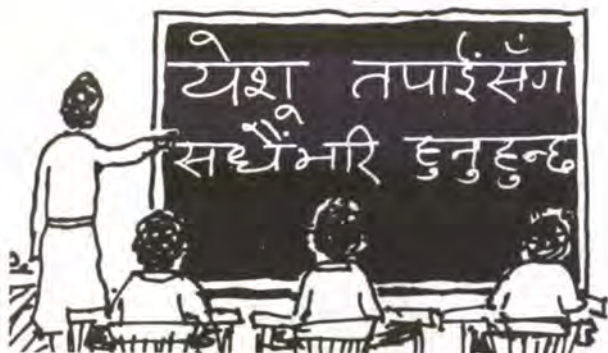 येशू तपाईंसँग
सधैंभरि हुनुहुन्छ